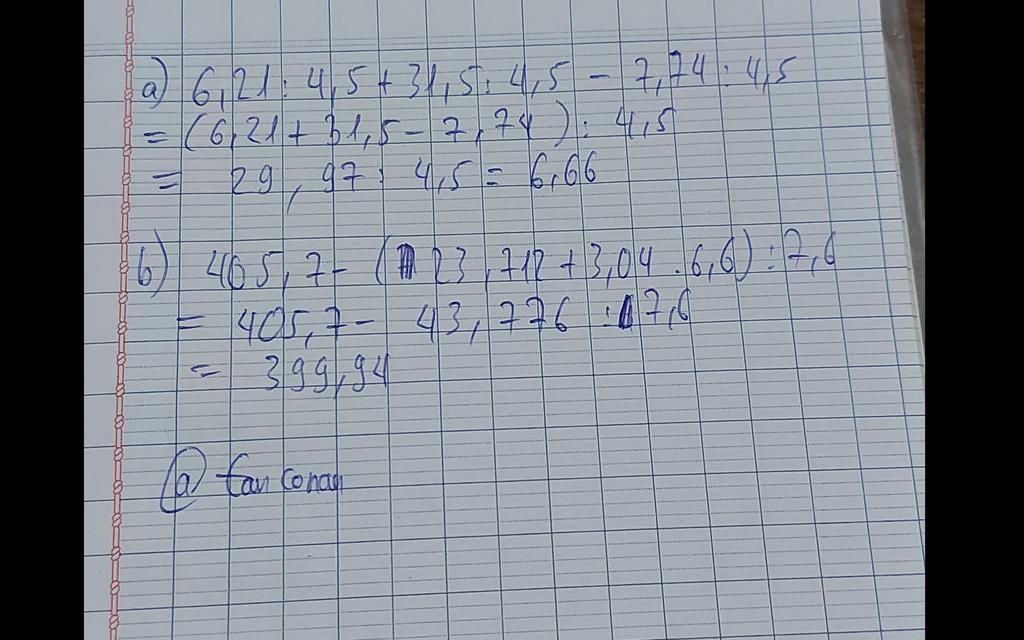 a) 6,21 : 4,5 + 31,5 : 4,5 - 7,74 : 4,5
= (6,21 + 31,5 - 7,74) : 4,5
= 29,97 : 4,5 = 6,66
b) 405,7 - (23,712 + 3,04 . 6,6) : 7,6
= 405,7 - 43,776 : 7,6
= 399,94
@ fan conan